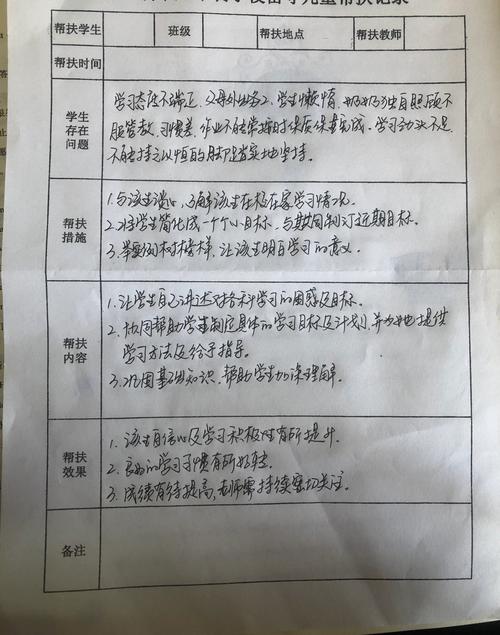 留守儿童帮扶记录
帮扶学生 班级 帮扶地点 帮扶教师
帮扶时间
学生存在问题
学习态度不端正，父母外出务工，学生懒惰，奶奶独自照顾不
服管教，习惯差，作业不能常按时保质保量完成，学习劲头不足，
不能持之以恒的脚踏实地坚持。
帮扶措施
1.与该生谈心，了解该生在校在家学习情况。
2.将学生简化成一个个小目标，与其共同制订近期目标。
3.举实例树榜样，让该生明白学习的意义。
帮扶内容
1.让学生自己讲述对各科学习的困惑及目标。
2.协同帮助学生制定具体的学习目标及计划，并为他提供
学习方法及给予指导。
3.巩固基础知识，帮助学生加深理解。
帮扶效果
1.该生自信心及学习积极性有所提升。
2.良好的学习习惯有所好转。
3.成绩有待提高，老师需持续密切关注。
备注